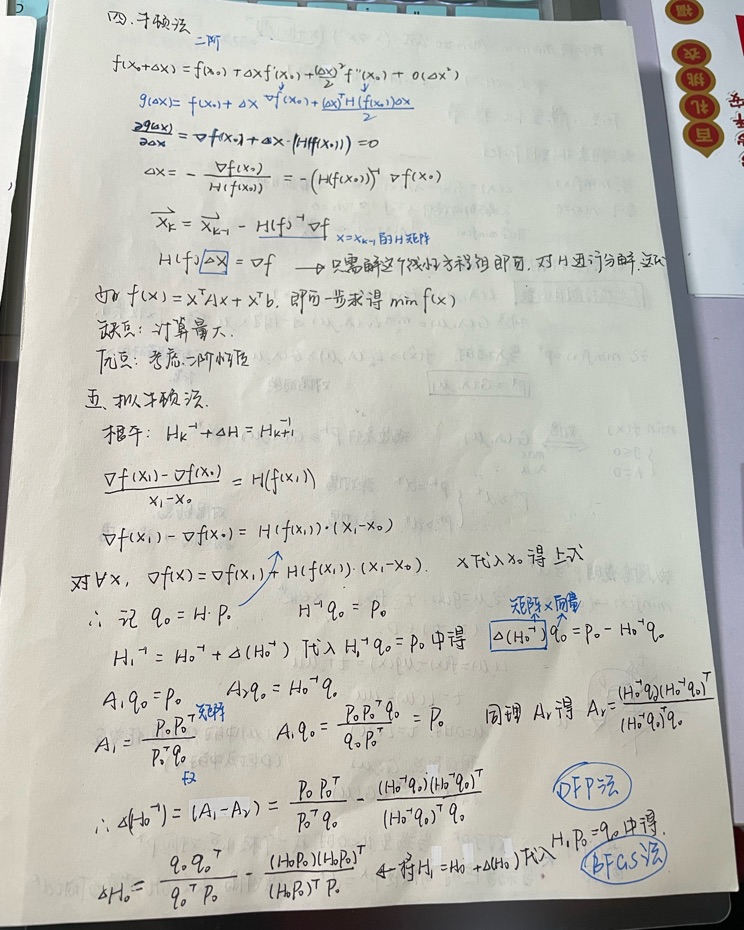 四. 牛顿法
二阶
f(x₀+Δx) = f(x₀) + Δx f'(x₀) + (Δx)²/2 f''(x₀) + o(Δx²)
g(Δx) = f(x₀) + Δx ∇f(x₀) + (Δx)ᵀH(f(x₀))Δx/2
∂g(Δx)/∂Δx = ∇f(x₀) + Δx·(H(f(x₀))) = 0
Δx = - ∇f(x₀)/H(f(x₀)) = -(H(f(x₀)))⁻¹ ∇f(x₀)
x_k = x_{k-1} - H(f)⁻¹∇f x=x_{k-1}的H矩阵
H(f) Δx = ∇f → 只需解这个线性方程组即可, 对H进行分解,
如 f(x) = xᵀAx + xᵀb, 即可一步求得 min f(x)
缺点: 计算量大.
优点: 考虑二阶性质
五. 拟牛顿法.
H_k⁻¹ + ΔH = H_{k+1}⁻¹
∇f(x₁) - ∇f(x₀) / x₁-x₀ = H(f(x₁))
∇f(x₁) - ∇f(x₀) = H(f(x₁))·(x₁-x₀)
对∀x, ∇f(x) = ∇f(x₁) + H(f(x₁))·(x₁-x₀). x代入x₀得上式
∴ 记 q₀ = H·p₀ H⁻¹q₀ = p₀ 矩阵×向量
H₁⁻¹ = H₀⁻¹ + Δ(H₀⁻¹) 代入 H₁⁻¹q₀ = p₀ 中得 Δ(H₀⁻¹) q₀ = p₀ - H₀⁻¹q₀
A₁q₀ = p₀ A₂q₀ = H₀⁻¹q₀
A₁ = p₀p₀ᵀ/p₀ᵀq₀ 矩阵 A₁q₀ = p₀p₀ᵀq₀/q₀p₀ᵀ = p₀ 同理 A₂得 A₂ = (H₀⁻¹q₀)(H₀⁻¹q₀)ᵀ/(H₀⁻¹q₀)ᵀq₀
∴ Δ(H₀⁻¹) = (A₁-A₂) = p₀p₀ᵀ/p₀ᵀq₀ - (H₀⁻¹q₀)(H₀⁻¹q₀)ᵀ/(H₀⁻¹q₀)ᵀq₀ DFP法
ΔH₀ = q₀q₀ᵀ/q₀ᵀp₀ - (H₀p₀)(H₀p₀)ᵀ/(H₀p₀)ᵀp₀ ← 将H₁ = H₀ + Δ(H₀) 代入 H₁p₀ = q₀ 中得. BFGS法
福
衣
挑
礼
百